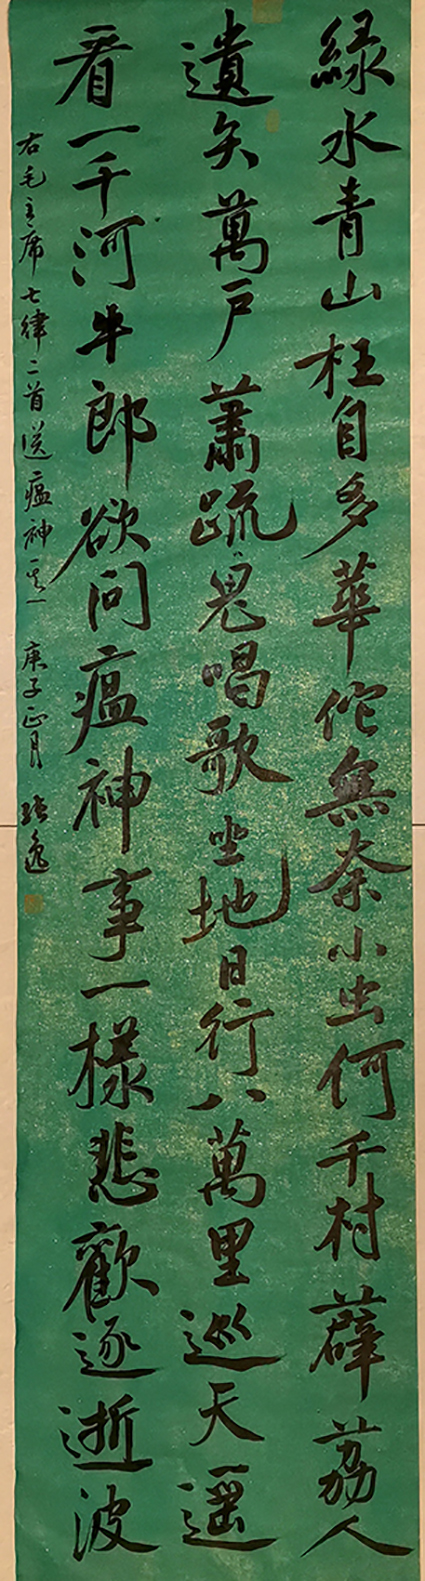 緑水青山枉自多華佗無奈小虫何千村薜荔人
遺矢萬戶蕭疏鬼唱歌坐地日行八萬里巡天遥
看一千河牛郎欲問瘟神事一樣悲歡逐逝波
右毛主席七律二首送瘟神其一 庚子正月 張逸